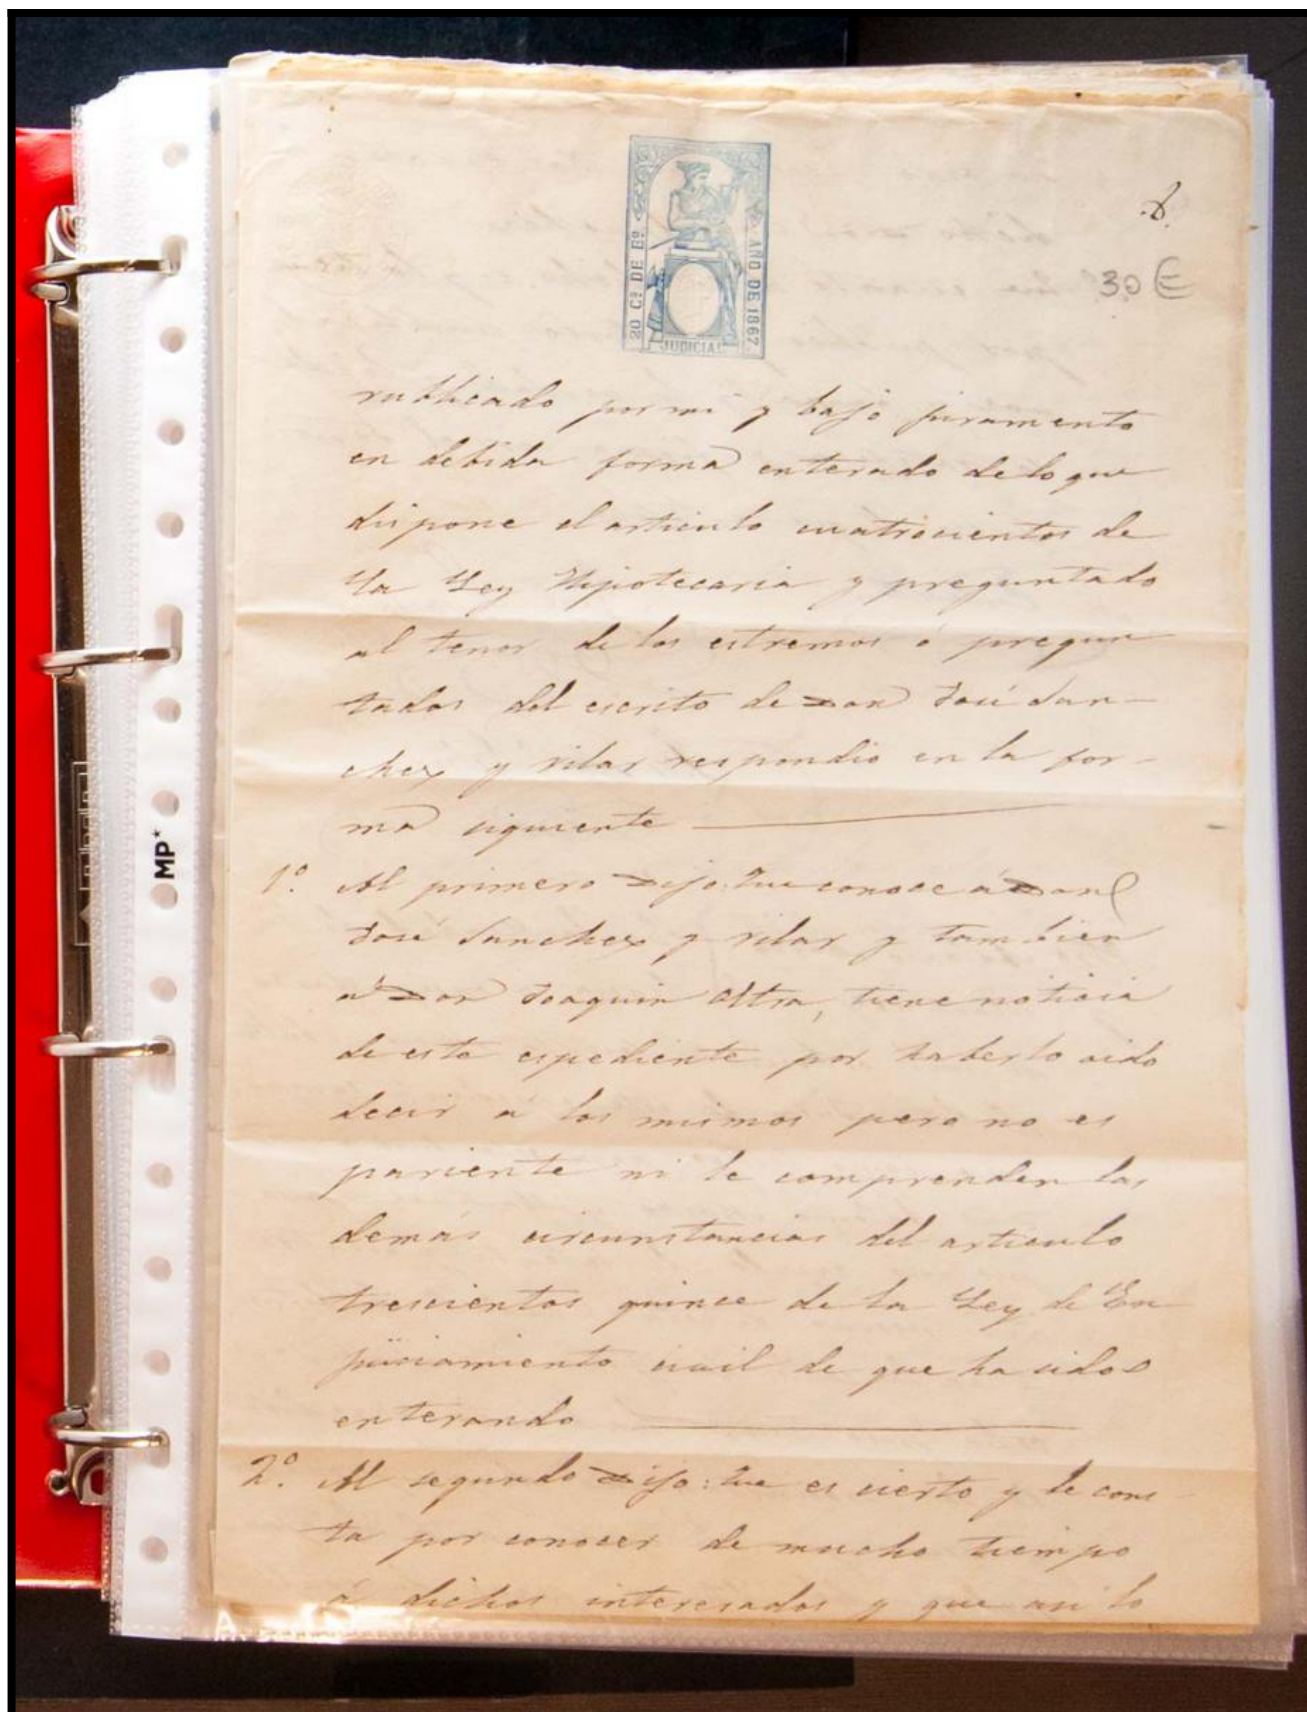 20 Cs DE Eº
AÑO DE 1867.
JUDICIAL
8.
30 €
rubricado por mi y bajo juramento
en debida forma enterado de lo que
dispone el articulo cuatrocientos de
la Ley Hipotecaria y preguntado
al tenor de los estremos ó pregun
tados del escrito de Don José San-
chez y Vilar respondio en la for-
ma siguiente
1º Al primero Dijo: Que conoce á Don
José Sanchez y Vilar y tambien
a Don Joaquin, tiene noticia
de este espediente por haberlo oido
decir á los mismos pero no es
pariente ni le comprenden las
demás circunstancias del articulo
trescientos quince de la Ley de En
juiciamiento civil de que ha sido
enterando
2º Al segundo Dijo: Que es cierto y le cons-
ta por conocer de mucho tiempo
á dichos interesados y que asi lo
MP*